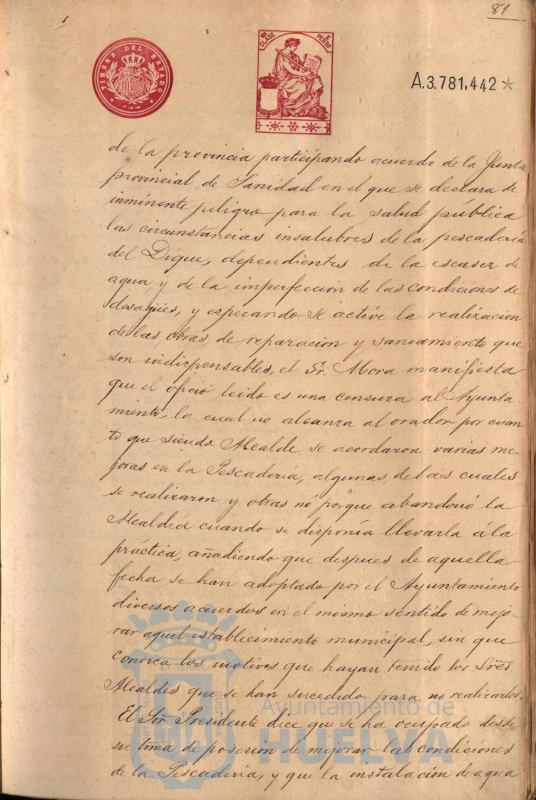 81
TIMBRE DEL ESTADO
CLASE
A.3.781,442 *
de la provincia participando acuerdo de la Junta
provincial de Sanidad en el que se declara de
inminente peligro para la salud pública
las circunstancias insalubres de la pescadería
del Dique, dependientes de la escasez de
agua y de la imperfección de las condiciones de
desagües, y esperando se active la realización
de las obras de reparación y saneamiento que
son indispensables, el Sr. Mora manifiesta
que el oficio leido es una censura al Ayunta-
miento, la cual no alcanza al orador por cuan
to que siendo Alcalde se acordaron varias me-
joras en la Pescadería, algunas de las cuales
se realizaron y otras no porque abandonó la
Alcaldia cuando se disponía llevarla á la
práctica, añadiendo que despues de aquella
fecha se han adoptado por el Ayuntamiento
diversos acuerdos en el mismo sentido de mejo-
rar aquel establecimiento municipal, sin que
conozca los motivos que hayan tenido los Sres
Alcaldes que se han sucedido para no realizarlos.
El Sor Presidente dice que se ha ocupado desde
su toma de posesion de mejorar las condiciones
de la Pescadería, y que la instalacion de agua
Ayuntamiento de
HUELVA